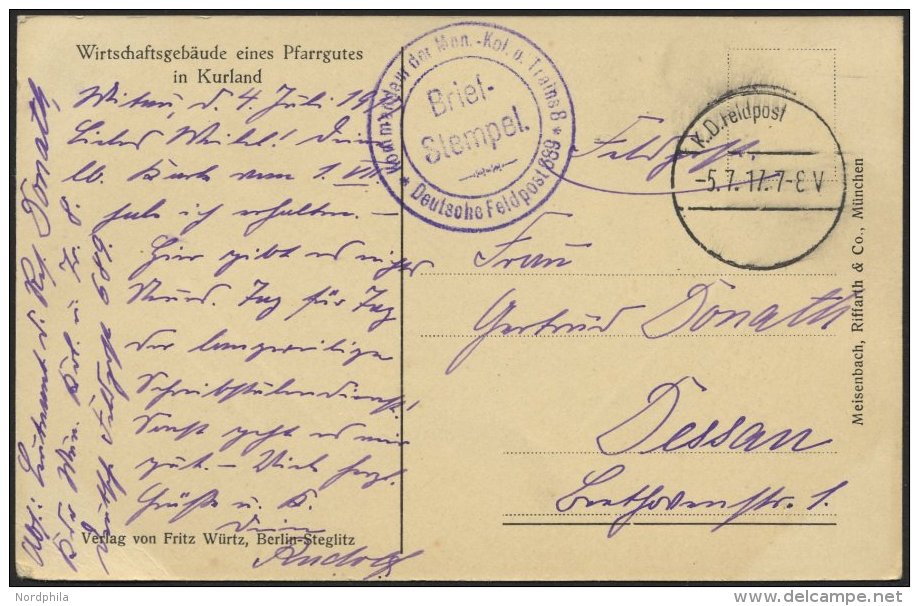 Wirtschaftsgebäude eines Pfarrgutes
in Kurland
Mitau, d. 4. Juli 17
Liebes Weibel! Deine
lb. Karte vom 1. VII.
hab ich erhalten. –
Hier gibt es nichts
Neues. Tag für Tag
der langweilige
Schreibstubendienst,
Sonst geht es mir
gut. – Viele herzl.
Grüße u. K.
Dein
Rudolf
Verlag von Fritz Würtz, Berlin-Steglitz
Abs: Leutnant d. Donath,
Kdr Mun. Kol. u. Tr. 8.
Deutsche Feldpost 689.
Kommandeur der Mun.-Kol. u. Trains 8
Brief-
Stempel.
* Deutsche Feldpost 689 *
K.D. Feldpost
-5.7.17.7-8 V
Feldpost.
Frau
Gertrud Donath
Dessau
Beethovenstr. 1
Meisenbach, Riffarth & Co., München
Nordphila
delcampe.net